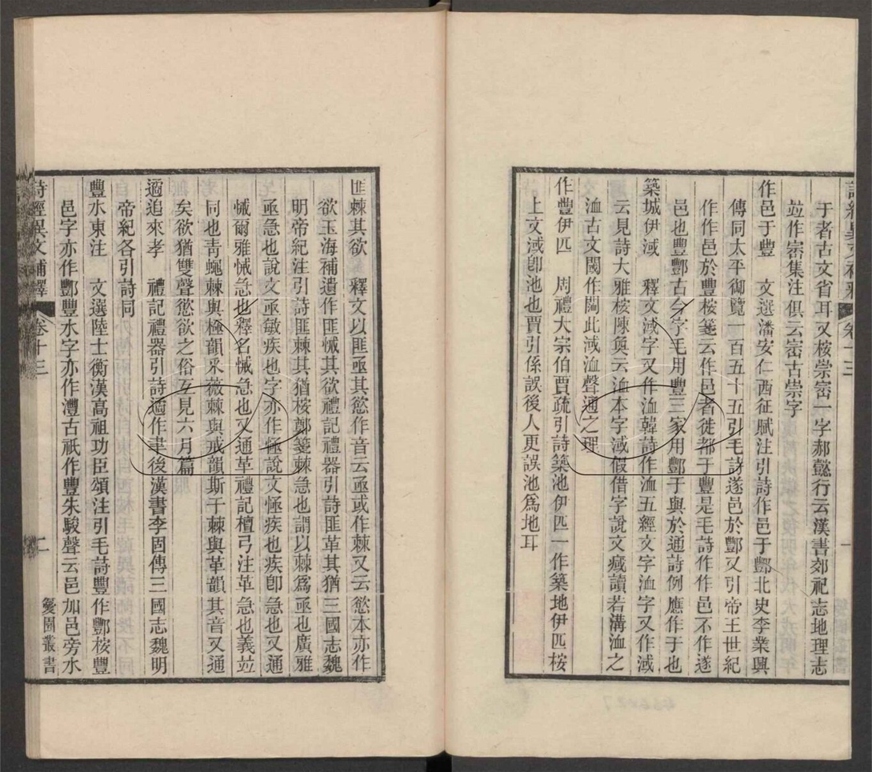 于者古文省耳又桉崇密一字郝懿行云漢書郊祀志地理志
竝作崈集注俱云崈古崇字
作邑于豐　文選潘安仁西征賦注引詩作邑于酆北史李業興
傳同太平御覽一百五十五引毛詩遂邑於酆又引帝王世紀
作作邑於豐桉箋云作邑者徙都于豐是毛詩作作邑不作遂
邑也豐酆古今字毛用豐三家用酆于與於通詩例應作于也
築城伊淢　釋文淢字又作洫韓詩作洫五經文字洫字又作淢
云見詩大雅桉陳奐云洫本字淢假借字說文𢧢讀若溝洫之
洫古文閾作𨵧此淢洫聲通之理
作豐伊匹　周禮大宗伯賈疏引詩築池伊匹一作築地伊匹桉
上文淢卽池也賈引係誤後人更誤池爲地耳
匪棘其欲　釋文以匪亟其慾作音云亟或作棘又云慾本亦作
欲玉海補遺作匪悈其欲禮記禮器引詩匪革其猶三國志魏
明帝紀注引詩匪棘其猶桉鄭箋棘急也謂以棘爲亟也廣雅
亟急也說文亟敏疾也字亦作㥛說文㥛疾也疾卽急也又通
悈爾雅悈急也釋名悈急也又通革禮記檀弓注革急也義竝
同也青蠅棘與極韻采薇棘與戒韻斯干棘與革韻其音又通
矣欲猶雙聲慾欲之俗互見六月篇
遹追來孝　禮記禮器引詩遹作聿後漢書李固傳三國志魏明
帝紀各引詩同
豐水東注　文選陸士衡漢高祖功臣頌注引毛詩豐作酆桉豐
邑字亦作酆豐水字亦作灃古祇作豐朱駿聲云邑加邑旁水
詩經異文補釋　卷十三　二　愛園叢書